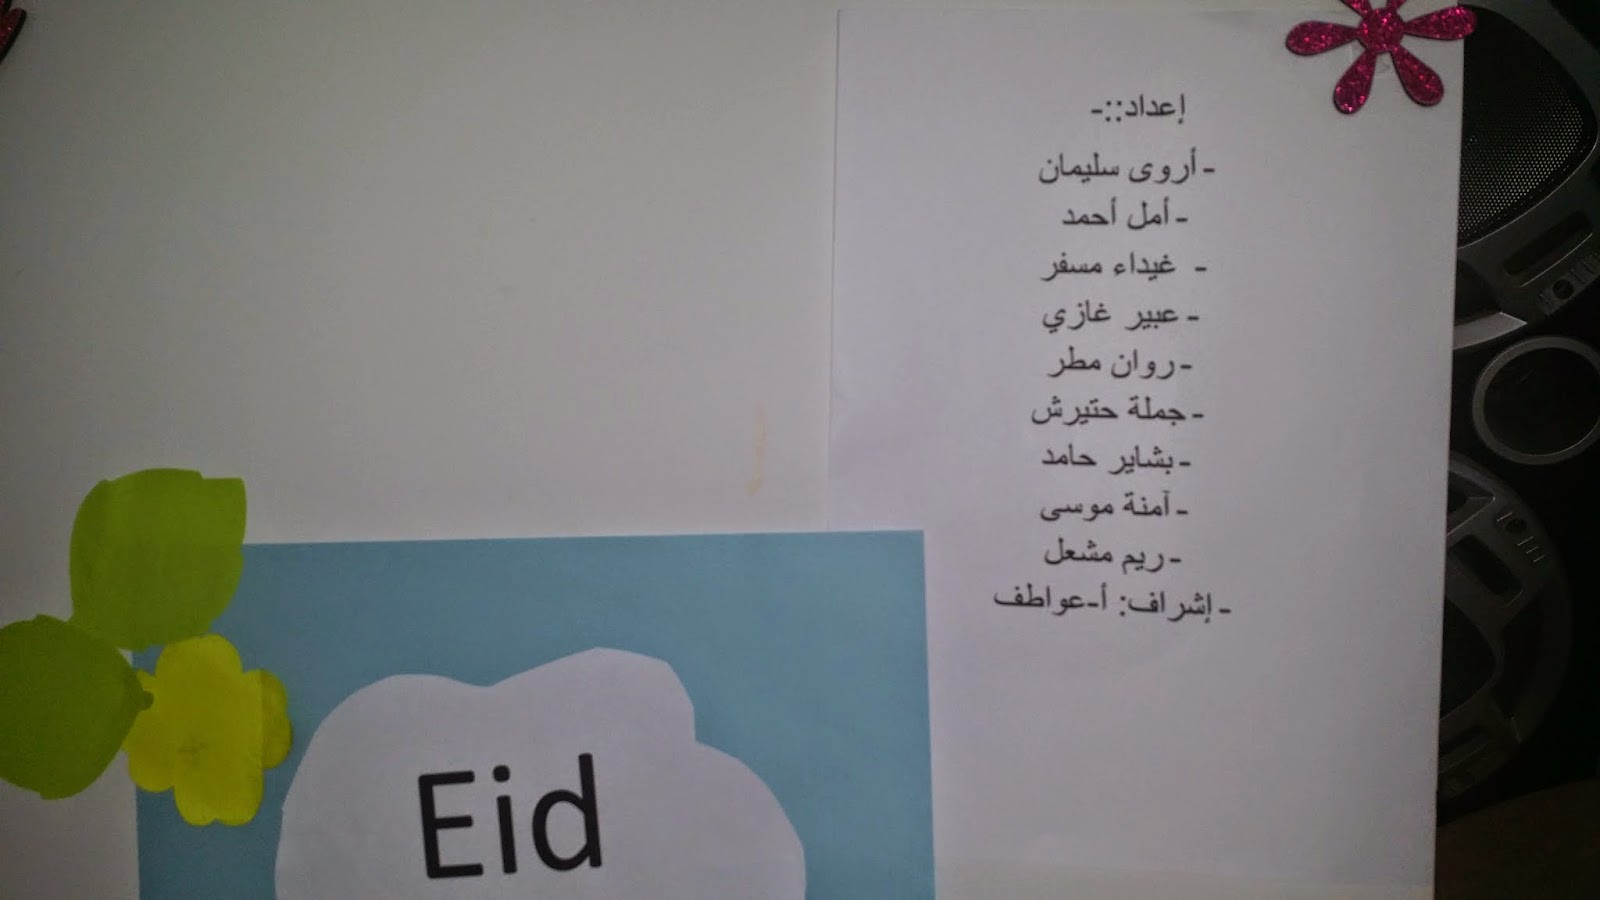 إعداد::-
- أروى سليمان
- أمل أحمد
- غيداء مسفر
- عبير غازي
- روان مطر
- جملة حتيرش
- بشاير حامد
- آمنة موسى
- ريم مشعل
- إشراف: أ-عواطف
Eid